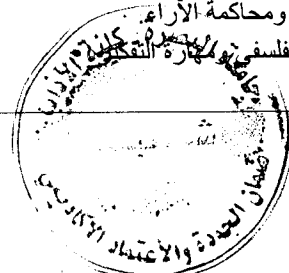 ومحاكمة الآراء.
فلسفي ومهارة التفكير
جامعة البصرة كلية الآداب
ضمان الجودة والاعتماد الأكاديمي